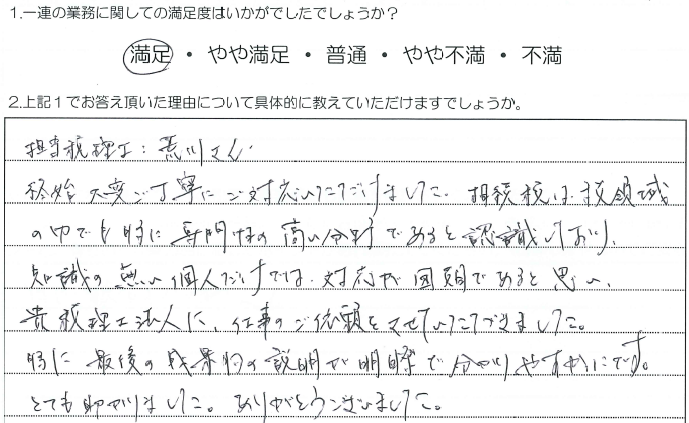 1.一連の業務に関しての満足度はいかがでしたでしょうか？
満足 ・ やや満足 ・ 普通 ・ やや不満 ・ 不満
2.上記１でお答え頂いた理由について具体的に教えていただけますでしょうか。
担当税理士：荒川さん
終始大変ご丁寧にご対応いただけました。相続税は税領域
の中でも特に専門性の高い分野であると認識しており、
知識の無い個人だけでは対応が困難であると思い、
貴税理士法人に、仕事のご依頼をさせていただきました。
特に最後の成果物の説明が明瞭で分かりやすかったです。
とても助かりました。ありがとうございました。